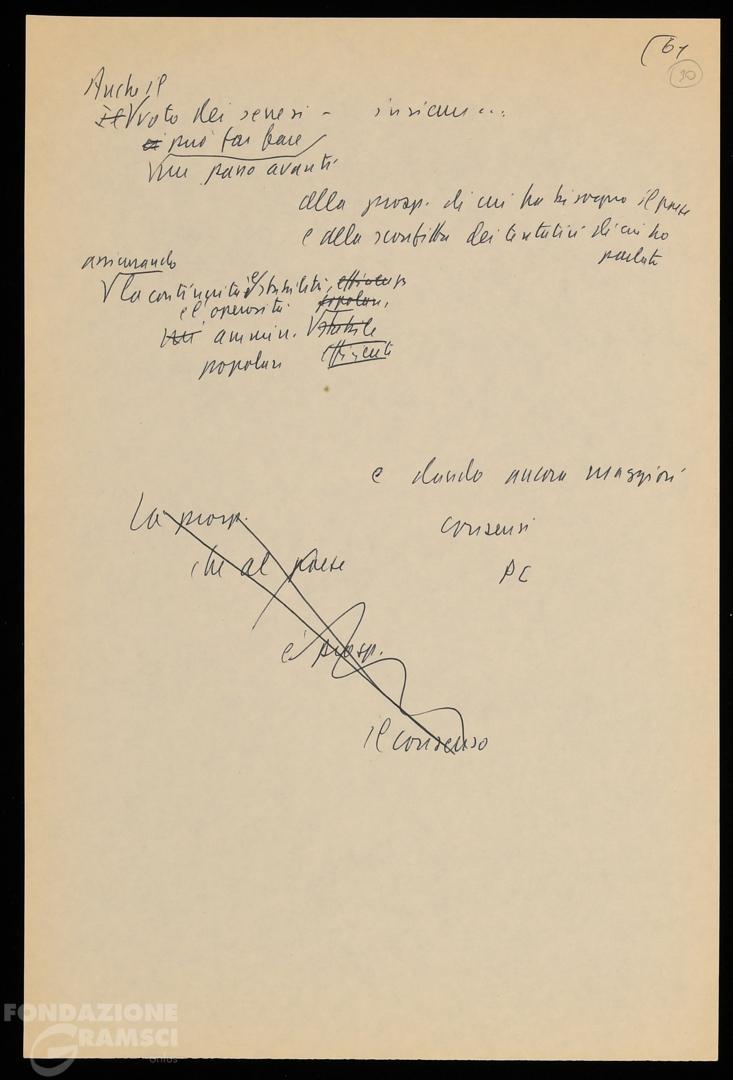 (61
30
Anche il
Il voto dei senesi - insieme...
può far fare
un passo avanti
alla prosp. di cui ha bisogno il paese
e alla sconfitta dei tentativi di cui ho
parlato
assicurando
la continuità e stabilità,
e l'operosità popolari,
ammin. stabile
popolari efficienti
e dando ancora maggiori
consensi
PC
La prosp.
che al paese
è prosp.
il consenso
FONDAZIONE
GRAMSCI
onlus